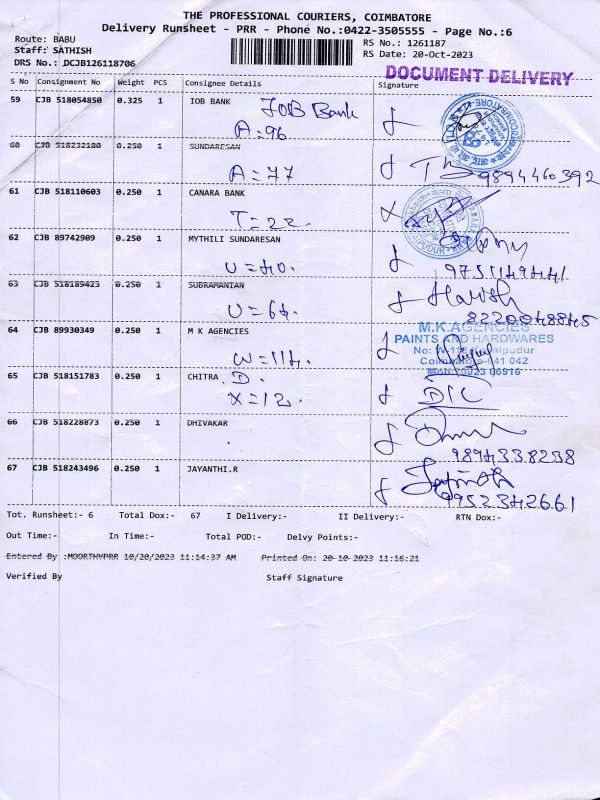 THE PROFESSIONAL COURIERS, COIMBATORE
Delivery Runsheet - PRR - Phone No.:0422-3505555 - Page No.:6
Route: BABU
Staff: SATHISH
DRS No.: DCJB126118706
RS No.: 1261187
RS Date: 20-Oct-2023
DOCUMENT DELIVERY
S No Consignment No Weight PCS Consignee Details Signature
59 CJB 518054850 0.325 1 IOB BANK IOB Bank
A=96
60 CJB 518232180 0.250 1 SUNDARESAN
A=77 9894460392
61 CJB 518110603 0.250 1 CANARA BANK
T=22
62 CJB 89742909 0.250 1 MYTHILI SUNDARESAN
U=40. 9751149441
63 CJB 518189423 0.250 1 SUBRAMANIAN Harish
U=64. 8220048845
64 CJB 89930349 0.250 1 M K AGENCIES
M.K.AGENCIES
PAINTS AND HARDWARES
W=114.
65 CJB 518151783 0.250 1 CHITRA . D.
X=12.
66 CJB 518228873 0.250 1 DHIVAKAR
9894338238
67 CJB 518243496 0.250 1 JAYANTHI.R
9952342661
Tot. Runsheet:- 6 Total Dox:- 67 I Delivery:- II Delivery:- RTN Dox:-
Out Time:- In Time:- Total POD:- Delvy Points:-
Entered By :MOORTHYPRR 10/20/2023 11:14:37 AM Printed On: 20-10-2023 11:16:21
Verified By Staff Signature